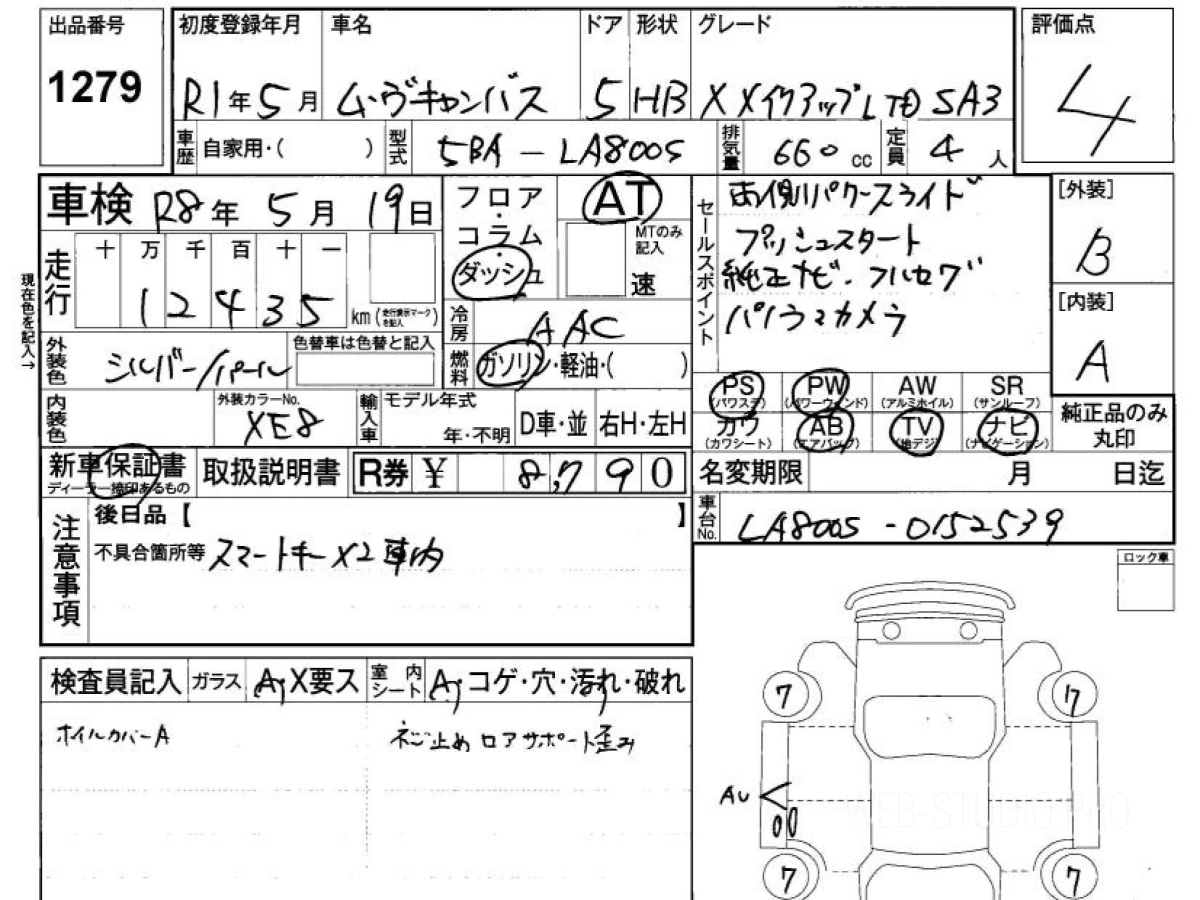 出品番号 1279
初度登録年月 R1年5月
車名 ムーヴキャンバス
ドア 5
形状 HB
グレード X メイクアップLTD SA3
評価点 4
車歴 自家用・( )
型式 5BA-LA800S
排気量 660cc
定員 4人
車検 R8年5月19日
フロア・コラム・ダッシュ
AT
MTのみ記入
速
セールスポイント
両側パワースライド
プッシュスタート
純正ナビ・フルセグ
パノラマカメラ
[外装] B
[内装] A
現在色を記入→
走行 十 万 千 百 十 一
12435 km (走行表示マークを記入)
冷房 AAC
燃料 ガソリン・軽油・( )
外装色 シルバー/パール
色替車は色替と記入
内装色
外装カラーNo. XE8
輸入車 モデル年式 年・不明
D車・並
右H・左H
PS (パワステ)
PW (パワーウィンド)
AW (アルミホイル)
SR (サンルーフ)
カワ (カワシート)
AB (エアバック)
TV (地デジ)
ナビ (ナビゲーション)
純正品のみ丸印
新車保証書
ディーラー捺印あるもの
取扱説明書
R券 ¥ 8,790
名変期限 月 日迄
車台No. LA800S-0152539
注意事項
後日品【 】
不具合箇所等 スマートキーX2車内
ロック車
検査員記入
ガラス A・X要ス
室内シート A・コゲ・穴・汚れ・破れ
ホイルカバーA
ネジ止め ロアサポート歪み
7
7
AU
7
7
WEB-STUDIO.PRO